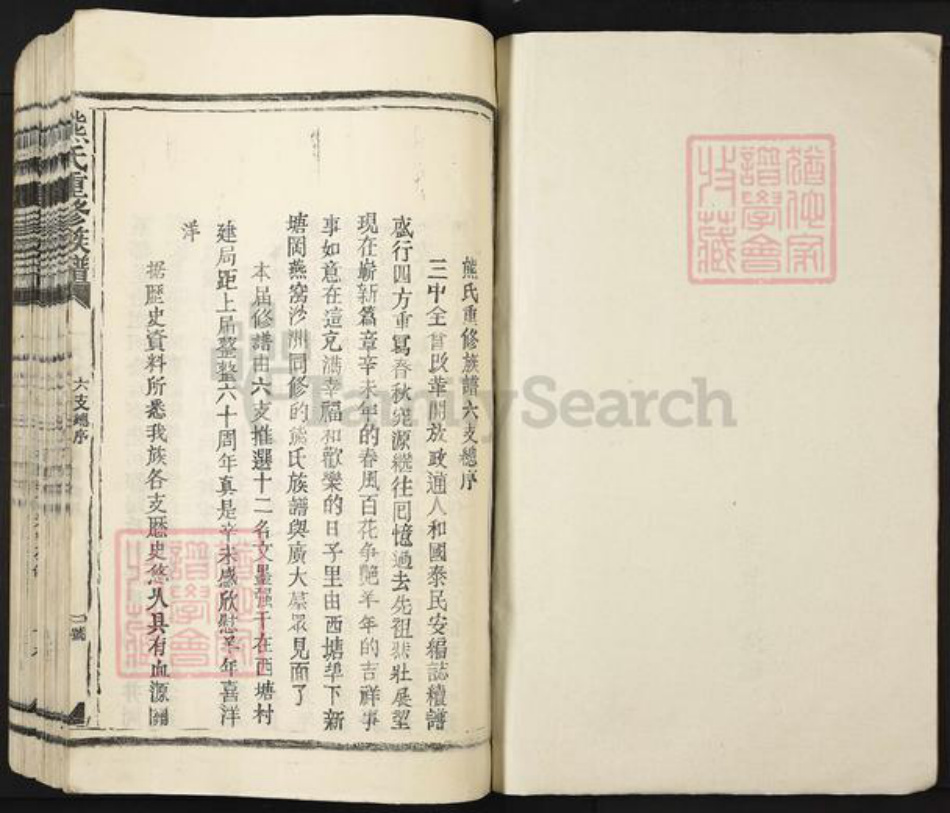 熊氏重修族譜六支總序
三中全會改革開放政通人和國泰民安編誌續譜
盛行四方重寫春秋窮源繼往囘憶過去先祖悲壯展望
現在嶄新篇章辛未年的春風百花争艶羊年的吉祥事
事如意在這充满幸福和歡樂的日子里由西塘下新
塘岡燕窩沙洲同修的熊氏族譜與廣大羣眾見面了
本届修譜由六支推選十二名文墨强于在西塘村
建局距上届整整六十周年真是辛未感欣慰羊年喜洋
洋
据歷史資料所悉我族各支歷史悠久具有血源關
熊氏重修族譜
六支總序
一號
譜學會
收藏
譜學會
收藏
FamilySearch